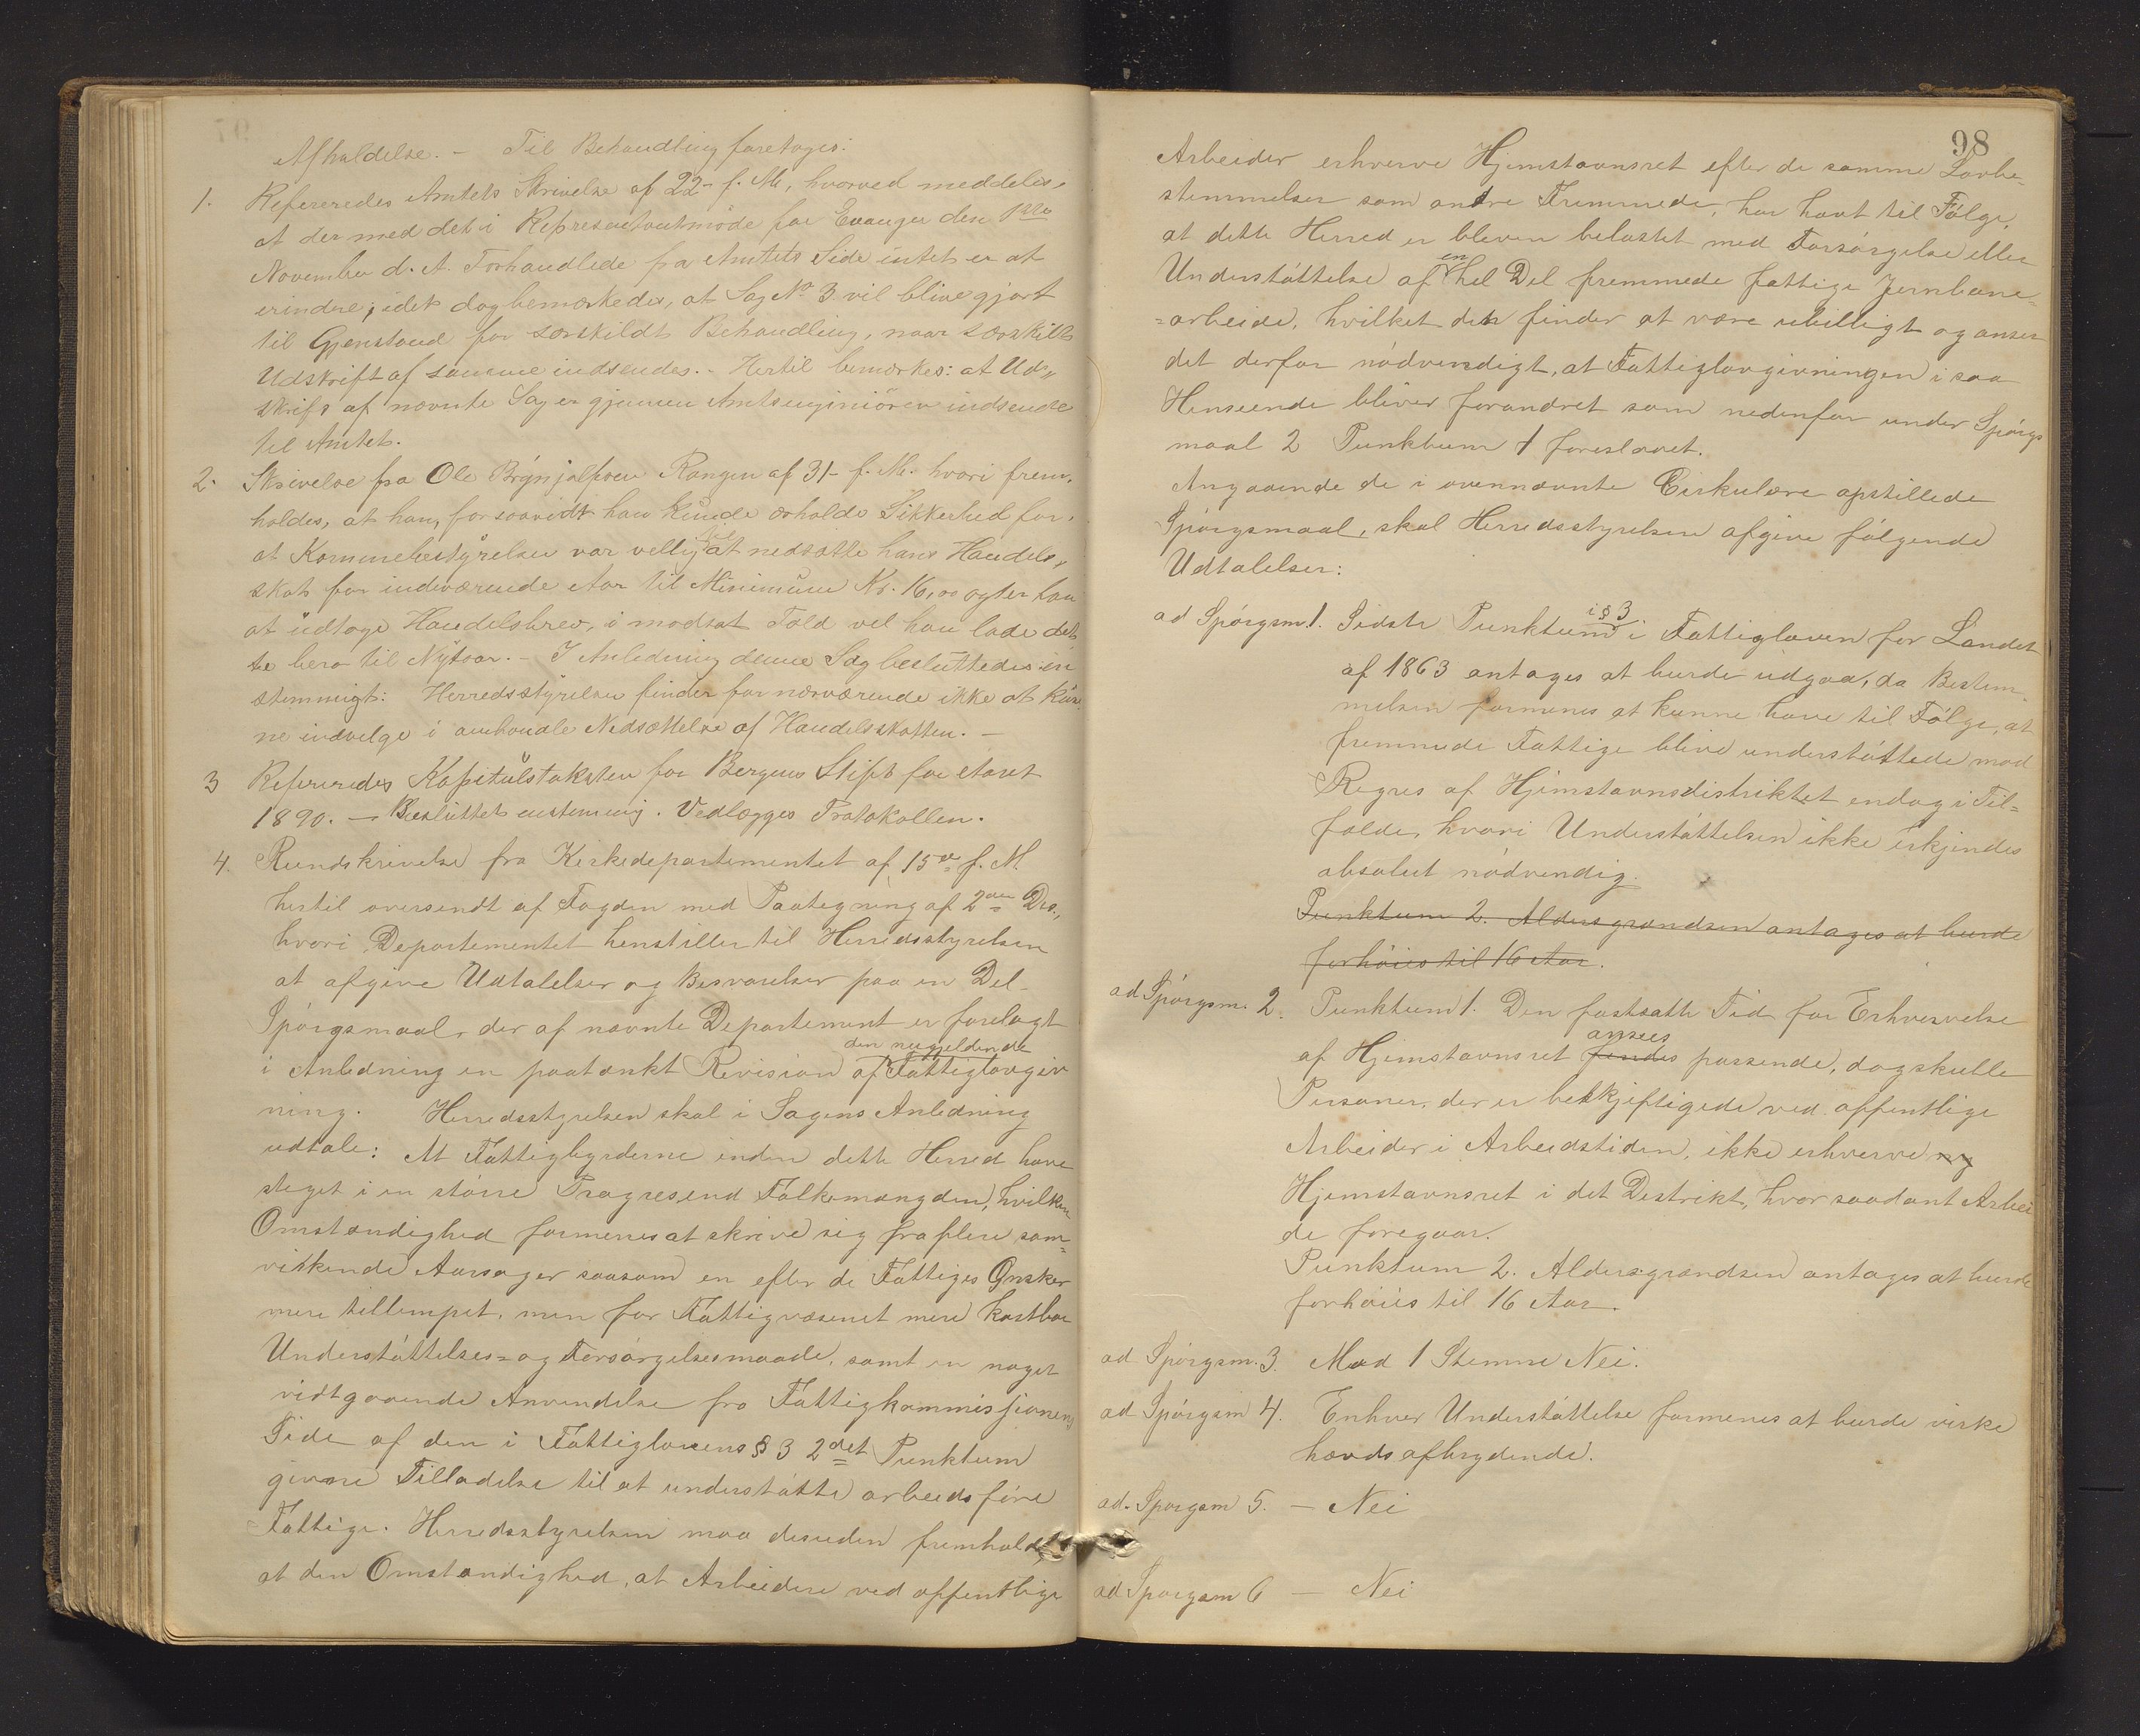 Afholdelse. – Til Behandling foretoges:
1. Refereredes Amtets Skrivelse af 22– f. M, hvorved meddeles,
at der med det i Repræsentantmøde for Evanger den 1ste
November d. A. Forhandlede fra Amtets Side intet er at
erindre; idet dog bemærkedes, at Sag No 3 vil blive gjort
til Gjenstand for særskildt Behandling, naar særskilt
Udskrift af samme indsendes. – Hertil bemærkes: at Ud„
skrift af nævnte Sag er gjennem Amtsingeniøren indsendt
til Amtet.
2. Skrivelse fra Ole Brynjulfsen Rongen af 31– f. M. hvori frem„
holdes, at han, forsaavidt han kunde erholde Sikkerhed for,
at Kommunebestyrelsen var villig til at nedsætte hans Handels„
skat for indeværende Aar til Minimum Kr. 16,00 agter han
at udtage Handelsbrev, i modsat Fald vil han lade det„
te bero til Nytaar. – I Anledning denne Sag besluttedes en
stemmigt: Herredsstyrelsen finder for nærværende ikke at kun
ne indvilge i omhandle Nedsættelse af Handelsskatten. –
3 Refereredes Kapitulstaksten for Bergens Stift for Aaret
1890. – Besluttet enstemmig. Vedlægges Protokollen.
4. Rundskrivelse fra Kirkedepartementet af 15de f. M.
hertil oversendt af Fogden med Paategning af 2den Ds.,
hvori Departementet henstiller til Herredsstyrelsen
at afgive Udtalelser og Besvarelser paa en Del
Spørgsmaal, der af nævnte Departement er forelagt
i Anledning en paatænkt Revision af den nugjeldende Fattiglovgiv
ning. Herredsstyrelsen skal i Sagens Anledning
udtale: At Fattigbyrderne inden dette Herred have
steget i en større Progres end Folkemængden, hvilken
Omstændighed formenes at skrive sig fra flere sam=
virkende Aarsager saasom en efter de Fattiges Ønsker
mere tillempet, men for Fattigvæsenet mere kostbar
Understøttelses= og Forsørgelsesmaade, samt en noget
vidtgaaende Anvendelse fra Fattigkommissionens
Side af den i Fattiglovens § 3 2det Punktum
givne Tilladelse til at understøtte arbeidsføre
Fattige. Herredsstyrelsen maa desuden fremholde,
at den Omstændighed, at Arbeidere ved offentlige
98
Arbeider erhverve Hjemstavnsret efter de samme Lovbe=
stemmelser som andre Fremmede, har havt til Følge,
at dette Herred er bleven belastet med Forsørgelse eller
Understøttelse af en hel Del fremmede fattige Jernbane=
=arbeide, hvilket den finder at være ubilligt og anser
det derfor nødvendigt, at Fattiglovgivningen i saa
Henseende bliver forandret som nedenfor under Spørgs
maal 2 Punktum 1 foreslaaet.
Angaaende de i ovennævnte Cirkulære opstillede
Spørgsmaal, skal Herredsstyrelsen afgive følgende
Udtalelser:
ad Spørgsm. 1. Sidste Punktum i § 3 i Fattigloven for Landet
af 1863 antages at burde udgaa, da Bestem
melsen formenes at kunne have til Følge, at
fremmede Fattige blive understøttede mod
Regres af Hjemstavnsdistriktet endog i Til=
fælde, hvori Understøttelsen ikke erkjendes
absolut nødvendig.
Punktum 2. Aldersgrændsen antages at burde
forhøies til 16 Aar.
ad Spørgsm. 2. Punktum 1. Den fastsatte Tid for Erhvervelse
af Hjemstavnsret findes ansees passende, dog skulle
Personer, der er beskjeftigede ved offentlige
Arbeider i Arbeidstiden, ikke erhverve ny
Hjemstavnsret i det Distrikt, hvor saadant Arbei
de foregaar.
Punktum 2. Aldersgrændsen antages at burde
forhøies til 16 Aar.
ad Spørgsm. 3. Mod 1 Stemme Nei.
ad Spørgsm 4. Enhver Understøttelse formenes at burde virke
hævdsafbrydende.
ad. Spørgsm 5. – Nei
ad Spørgsm 6 – Nei